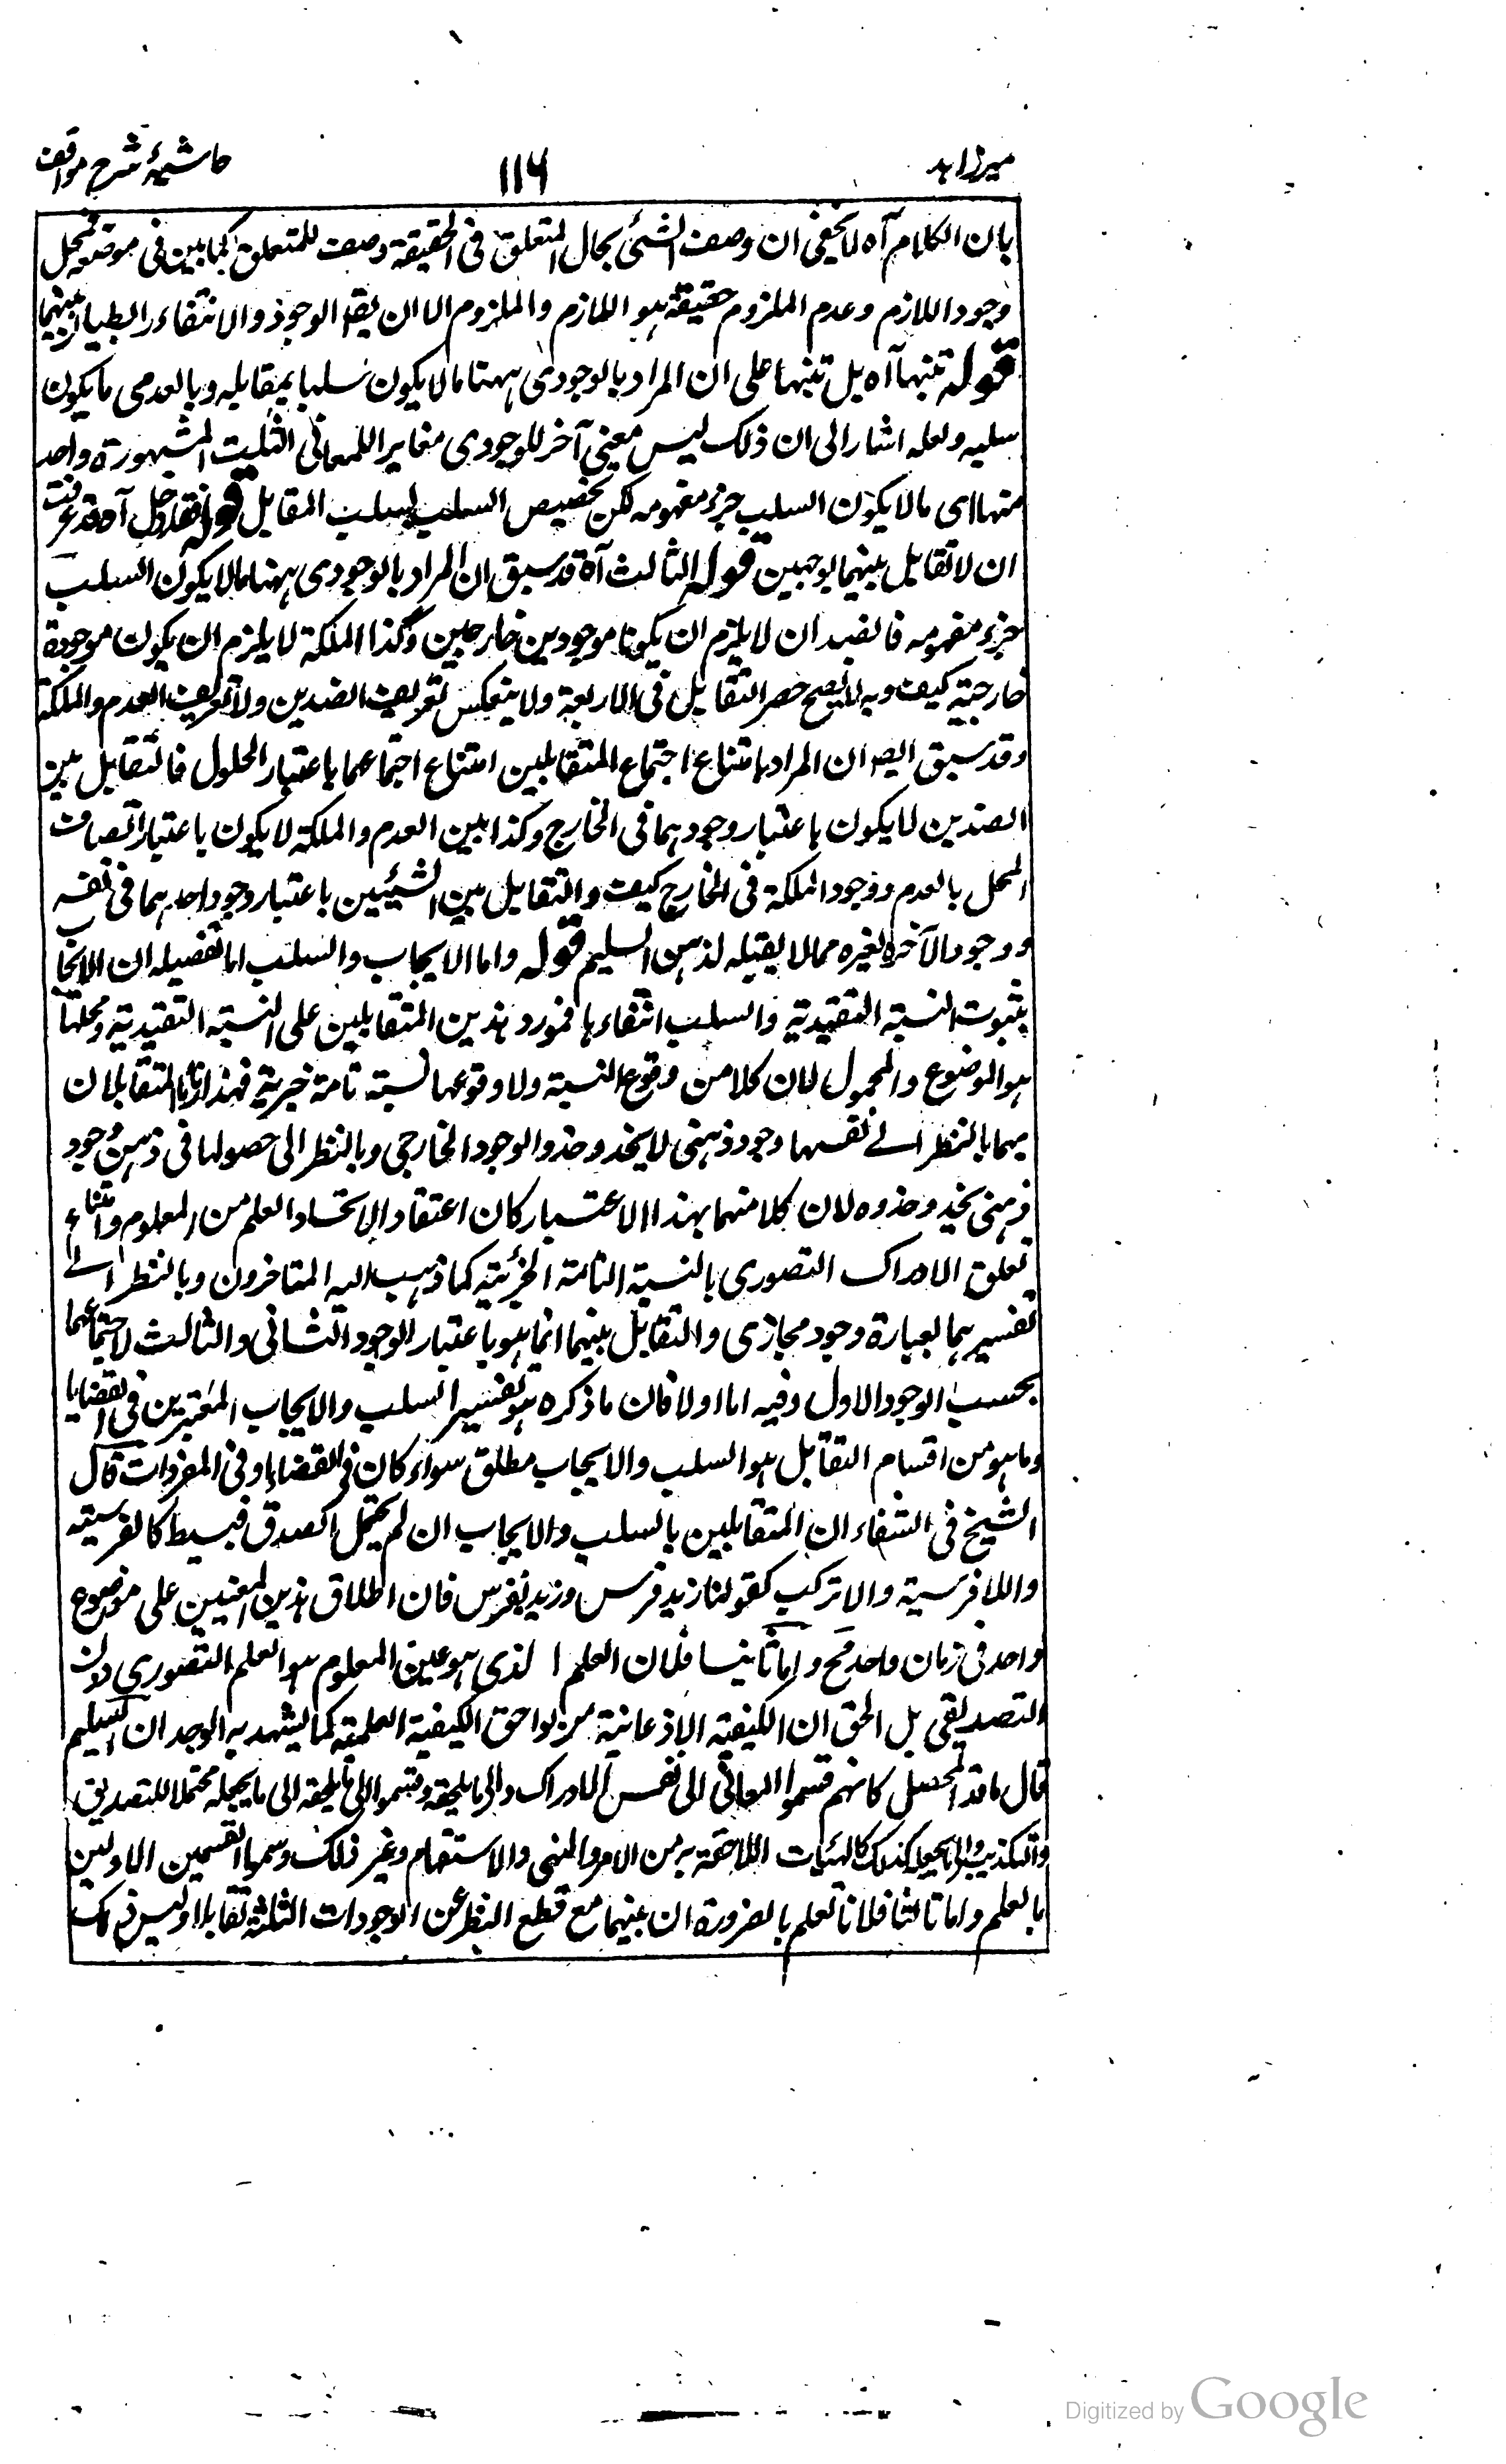 ميرزاهد
١١٦
حاشيۀ شرح مواقف
بان الكلام آه لا يخفى ان وصف الشئ بحال المتعلق فى الحقيقة وصف للمتعلق كما بين فى موضعه فمحل
وجود اللازم وعدم الملزوم حقيقة هو اللازم والملزوم الا ان يقم الوجود والانتفاء رابطيان بينهما
قوله تنبها آه بل تنبها على ان المراد بالوجودى ههنا ما لا يكون سلبا بمقابله وبالعدمى ما يكون
سلبه ولعله اشار الى ان ذلك ليس معنى آخر للوجودى مغايرا للمعانى الثلث المشهورة واحد
منها اى ما لا يكون السلب جزء مفهومه لكن تخصيص السلب بسلب المقابل قوله فقد دخل آه قد عرفت
ان لا تقابل بينهما بوجهين قوله الثالث آه قد سبق ان المراد بالوجودى ههنا ما لا يكون السلب
جزء مفهومه فالضدان لا يلزم ان يكونا موجودين خارجيين وكذا الملكة لا يلزم ان يكون موجودة
خارجية كيف وبه لا يصح حصر التقابل فى الاربعة ولا ينعكس تعريف الضدين ولا تعريف العدم والملكة
وقد سبق ايض ان المراد بامتناع اجتماع المتقابلين امتناع اجتماعهما باعتبار الحلول فالتقابل بين
الضدين لا يكون باعتبار وجودهما فى الخارج وكذا بين العدم والملكة لا يكون باعتبار اتصاف
المحل بالعدم ووجود الملكة فى الخارج كيف والتقابل بين الشيئين باعتبار وجود احدهما فى نفسه
ووجود الآخر لغيره مما لا يقبله لذهن السليم قوله واما الايجاب والسلب اما تفصيله ان الايجاب
ثبوت النسبة التقيدية والسلب انتفاءها فمورد هذين المتقابلين على النسبة التقيدية ومحلها
هو الموضوع والمحمول لان كلا من وقوع النسبة ولا وقوعها نسبة تامة خبرية فهذان المتقابلان
لهما بالنظر الى نفسهما وجود ذهنى لا يحذو حذو الوجود الخارجى وبالنظر الى حصولها فى ذهن وجود
ذهنى يحذو حذوه لان كلا منهما بهذا الاعتبار كان اعتقاد الاتحاد العلم من المعلوم وامتناع
تعلق الادراك التصورى بالنسبة التامة الخبرية كما ذهب اليه المتاخرون وبالنظر الى
تفسيرهما لعبارة وجود مجازى والتقابل بينهما انما هو باعتبار الوجود الثانى والثالث لاجتماعهما
بحسب الوجود الاول وفيه اما اولا فان ما ذكره هو تفسير السلب والايجاب المعتبرين فى القضايا
وما هو من اقسام التقابل هو السلب والايجاب مطلق سواء كان فى القضايا او فى المفردات قال
الشيخ فى الشفاء ان المتقابلين بالسلب والايجاب ان لم يحتمل الصدق فبسيط كالفرسية
واللا فرسية والا تركب كقولنا زيد فرس وزيد ليس بفرس فان اطلاق هذين المعنيين على موضوع
واحد فى زمان واحد مح واما ثانيا فلان العلم الذى هو عين المعلوم هو العلم التصورى دون
التصديقى بل الحق ان الكيفية الاذعانية من لواحق الكيفية العلمية كما يشهد به الوجدان السليم
قال ناقد المحصل كانهم قسموا المعانى الى نفس الادراك والى ما يلحقه وقسموا الى ما يلحقه الى ما يجعله محتملا للتصديق
والتكذيب والى ما لا يجعله كذلك كالهئيات اللاحقة به من الامر والنهى والاستفهام وغير ذلك وسموا القسمين الاولين
بالعلم واما ثالثا فلانا نعلم بالضرورة ان بينهما مع قطع النظر عن الوجودات الثلثة تقابلا وليس ذلك
Digitized by Google